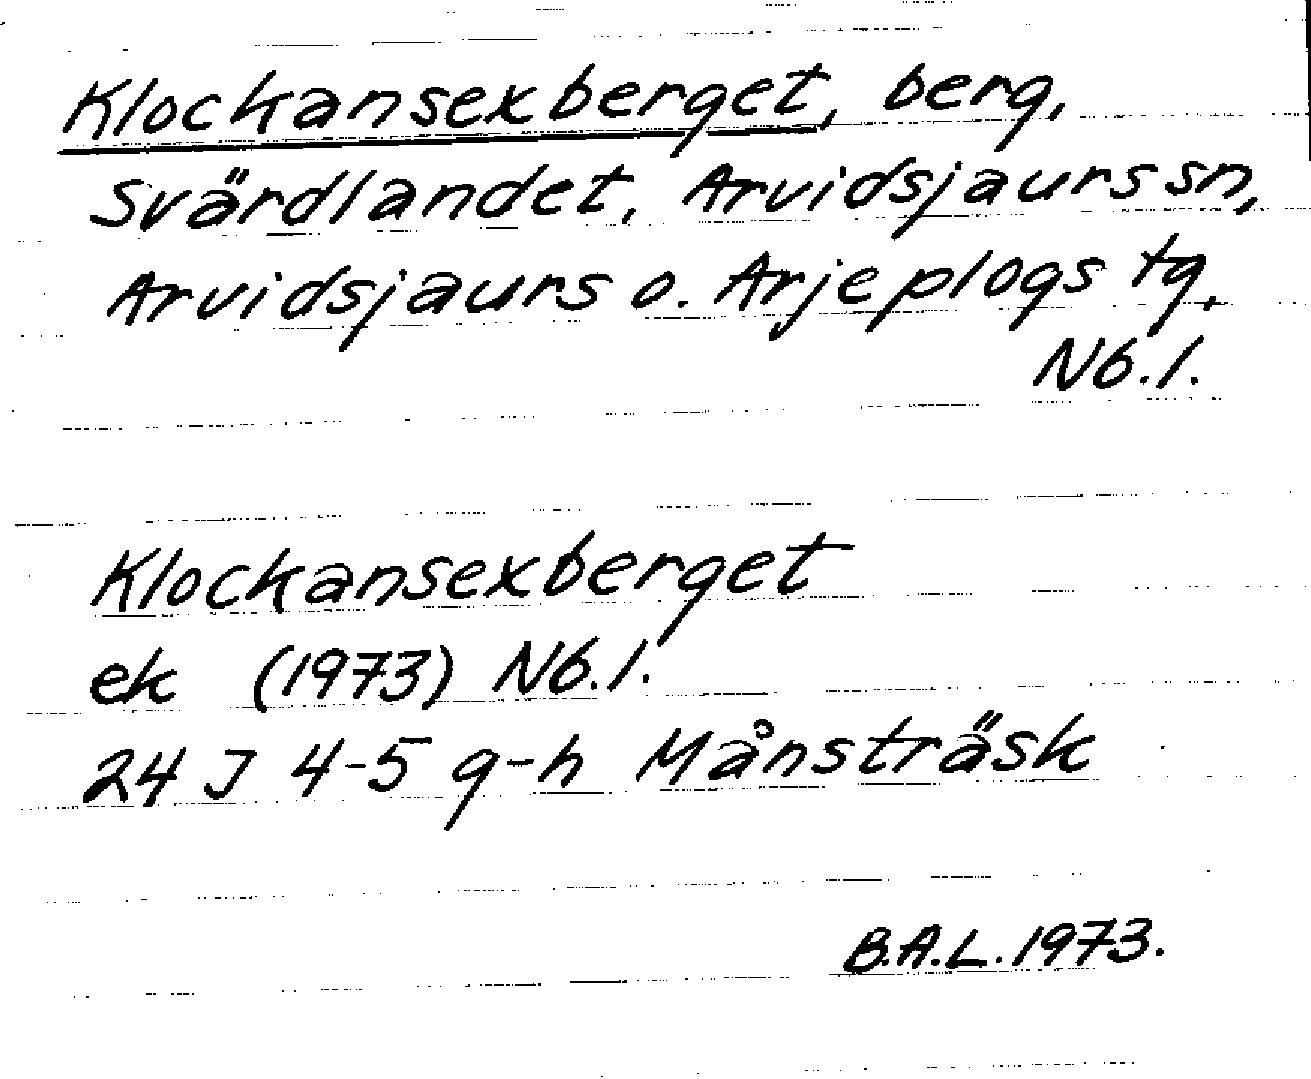 Klockansexberget, berg,
Svärdlandet, Arvidsjaurs sn,
Arvidsjaurs o. Arjeplogs tg,
Nb.l.
Klockansexberget
ek (1973) Nb.l.
24 J 4-5 g-h Månsträsk
B.A.L. 1973.